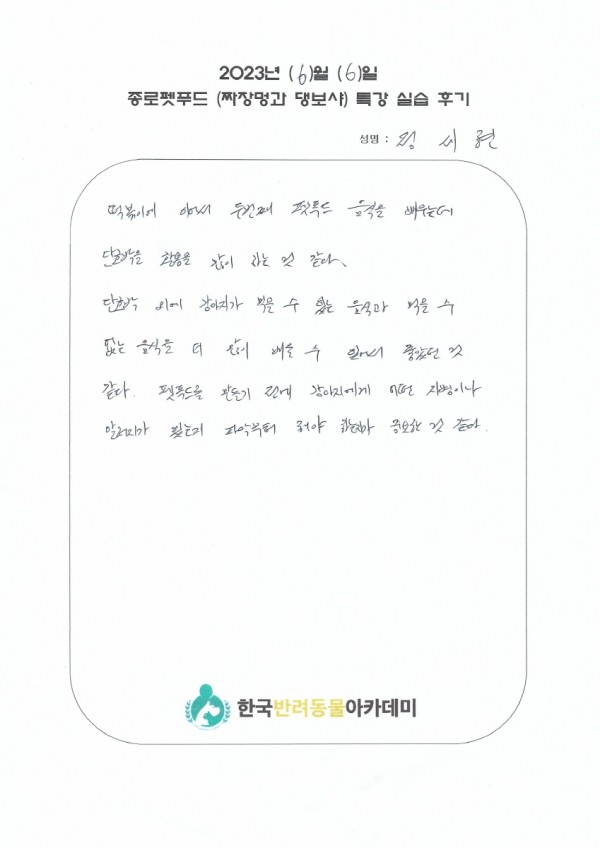 2023년 (6)월 (6)일
종로펫푸드 (짜장멍과 댕보샤) 특강 실습 후기
성명 : 정 시 련
떡볶이에 이어서 두번째 펫푸드 음식을 배우는데
단호박을 활용을 많이 하는 것 같다.
단호박 외에 강아지가 먹을 수 있는 음식과 먹을 수
없는 음식을 더 많이 배울 수 있어서 좋았던 것
같다. 펫푸드를 만들기 전에 강아지에게 어떤 질병이나
알러지가 있는지 파악부터 해야 하는게 중요한 것 같다.
한국반려동물아카데미